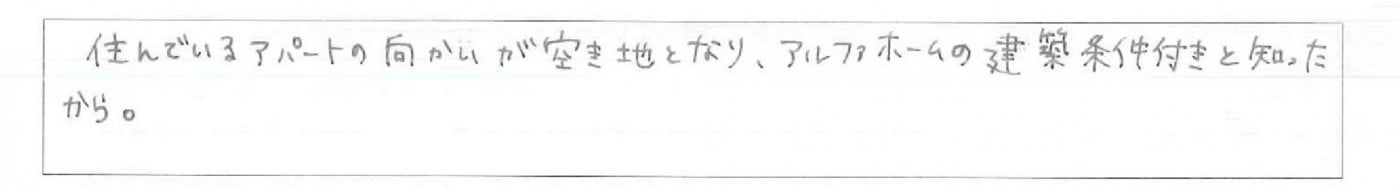 住んでいるアパートの向かいが空き地となり、アルファホームの建築条件付きと知った
から。